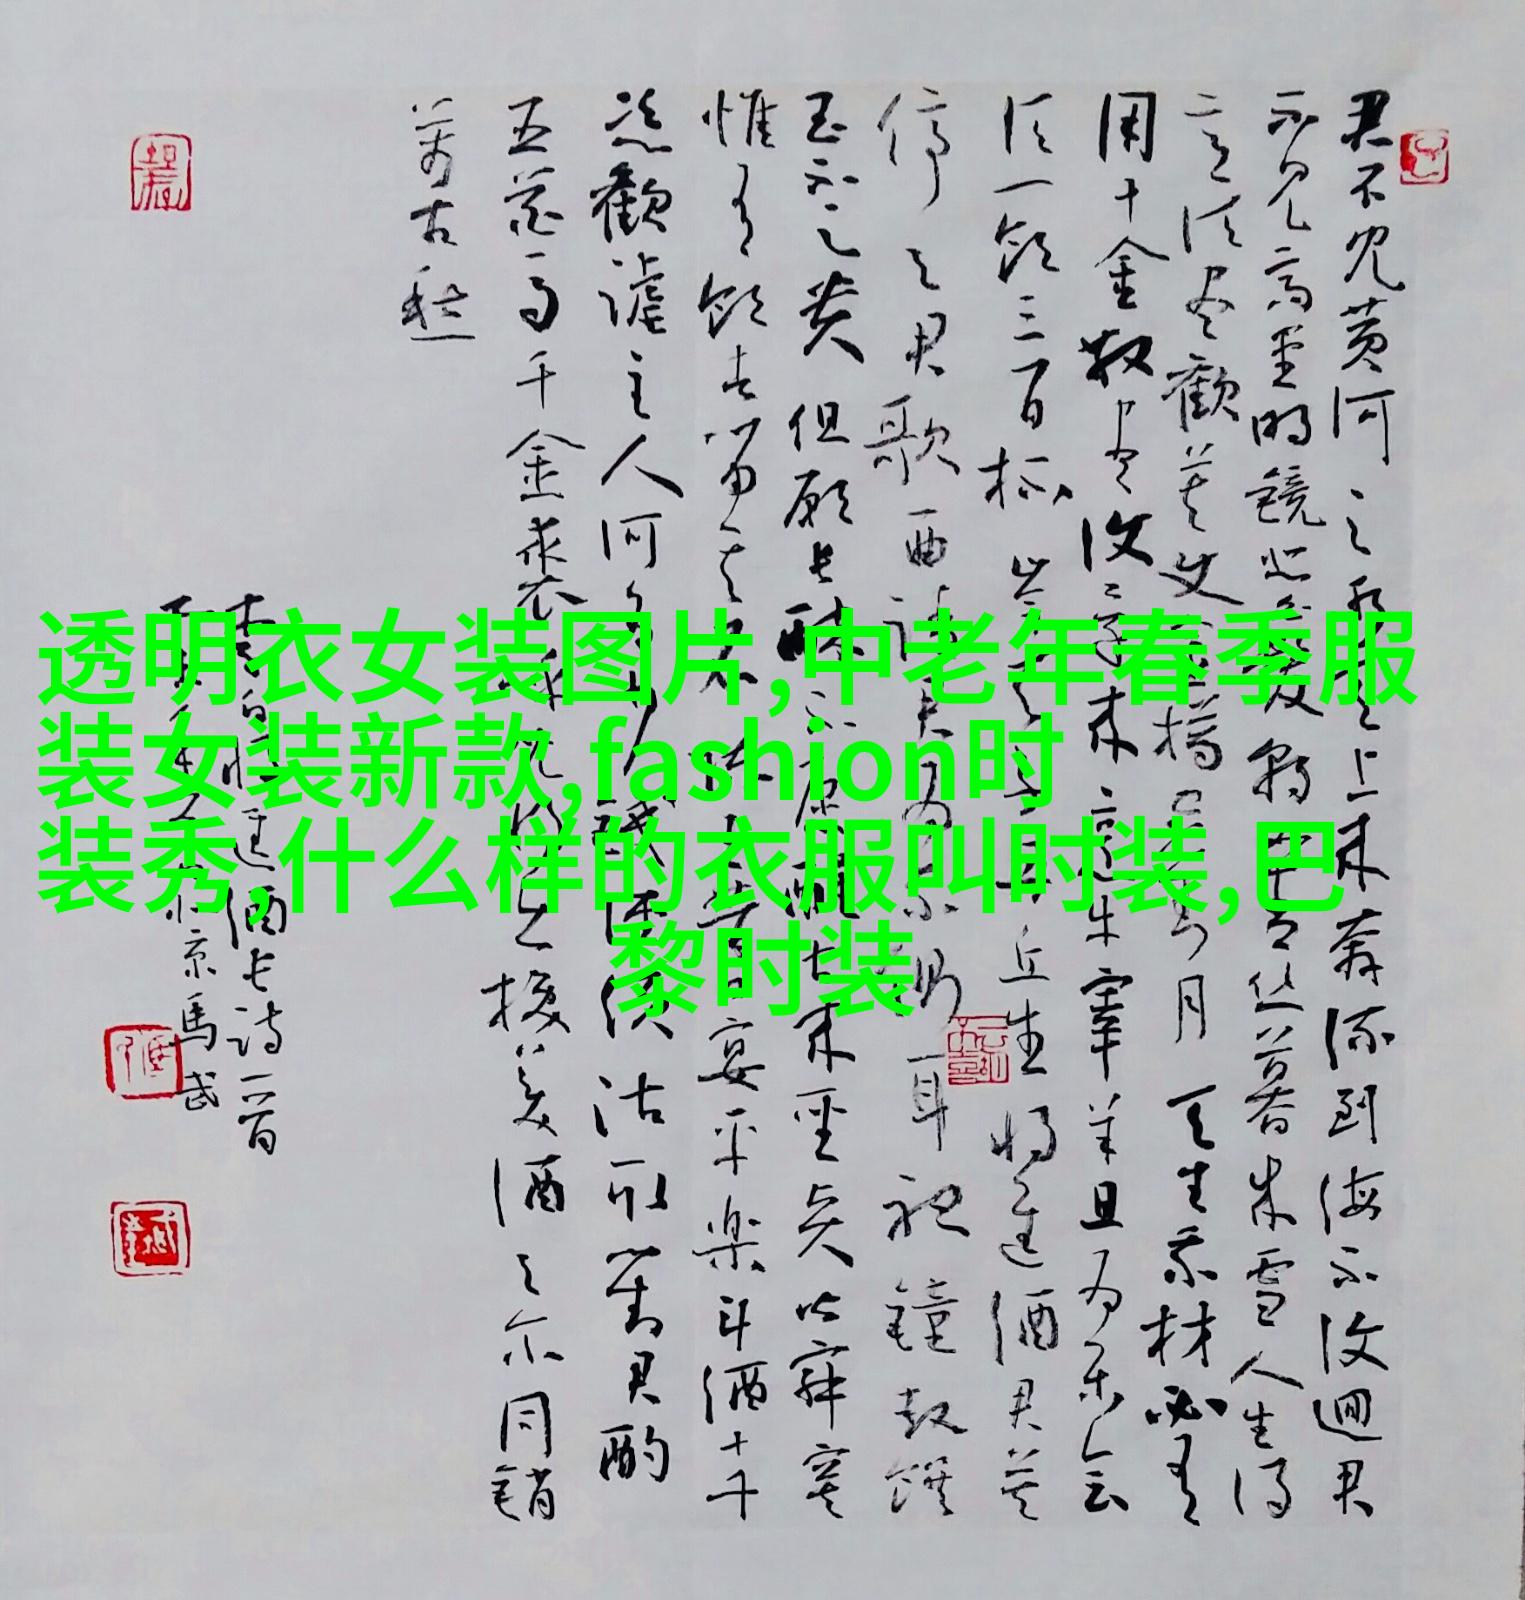 透明衣女装图片,中老年春季服
装女装新款,fashion时
装秀,什么样的衣服叫时装,巴
黎时装
君不見黄河之水天上来奔流到海不復迴君
不見高堂明鏡悲白髮朝如青丝暮成雪人生得
意須尽歡莫使金樽空對月天生我材必有
用千金散尽復還来烹牛宰羊且为乐会
須一飲三百杯岑夫子丹丘生将進酒君莫
停与君歌一曲請君为我側耳聽鐘鼓饌
玉不足贵但願長醉不願醒古来聖贤皆寂寞
惟有飲者留其名陈王昔時宴平楽斗酒十千
恣歡謔主人何为言少錢径須沽取對君酌
五花馬千金裘呼兒将出換美酒与尔同銷
萬古愁
李白将進酒長詩一首
京馬武